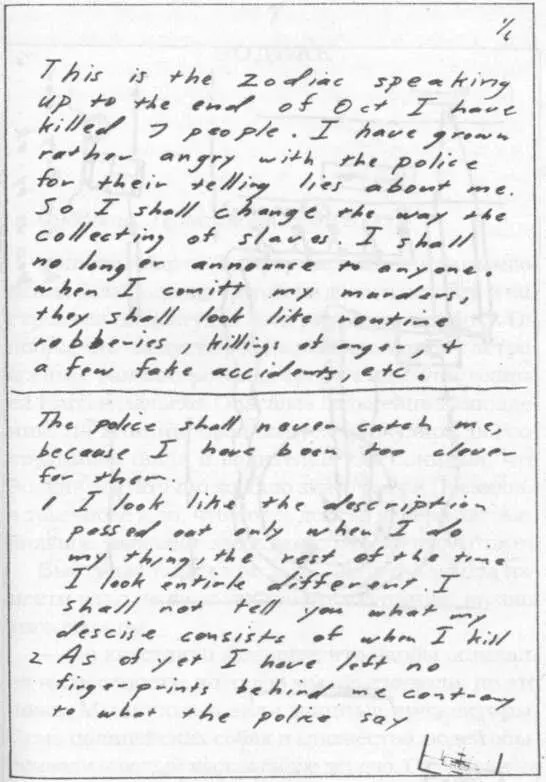 1/6
This is the zodiac speaking
up to the end of Oct I have
killed 7 people. I have grown
rather angry with the police
for their telling lies about me.
So I shall change the way the
collecting of slaves. I shall
no longer announce to anyone.
when I comitt my murders,
they shall look like routine
robberies, killings of anger, +
a few fake accidents, etc.
The police shall never catch me,
because I have been too clever
for them.
1 I look like the description
passed out only when I do
my thing, the rest of the time
I look entirle different. I
shall not tell you what my
descise consists of when I kill
2 As of yet I have left no
fingerprints behind me contrary
to what the police say